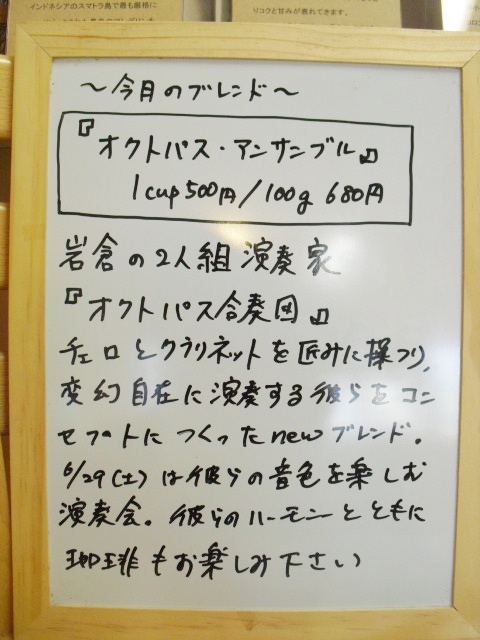 インドネシアのスマトラ島で最も厳格に
りコクと甘みが表れてきます。
～今月のブレンド～
『オクトパス・アンサンブル』
1cup500円/100g 680円
岩倉の2人組演奏家
『オクトパス合奏団』
チェロとクラリネットを匠みに操つり、
変幻自在に演奏する彼らをコン
セプトにつくったnewブレンド。
6/29(土)は彼らの音色を楽しむ
演奏会。彼らのハーモニーとともに
珈琲もお楽しみ下さい